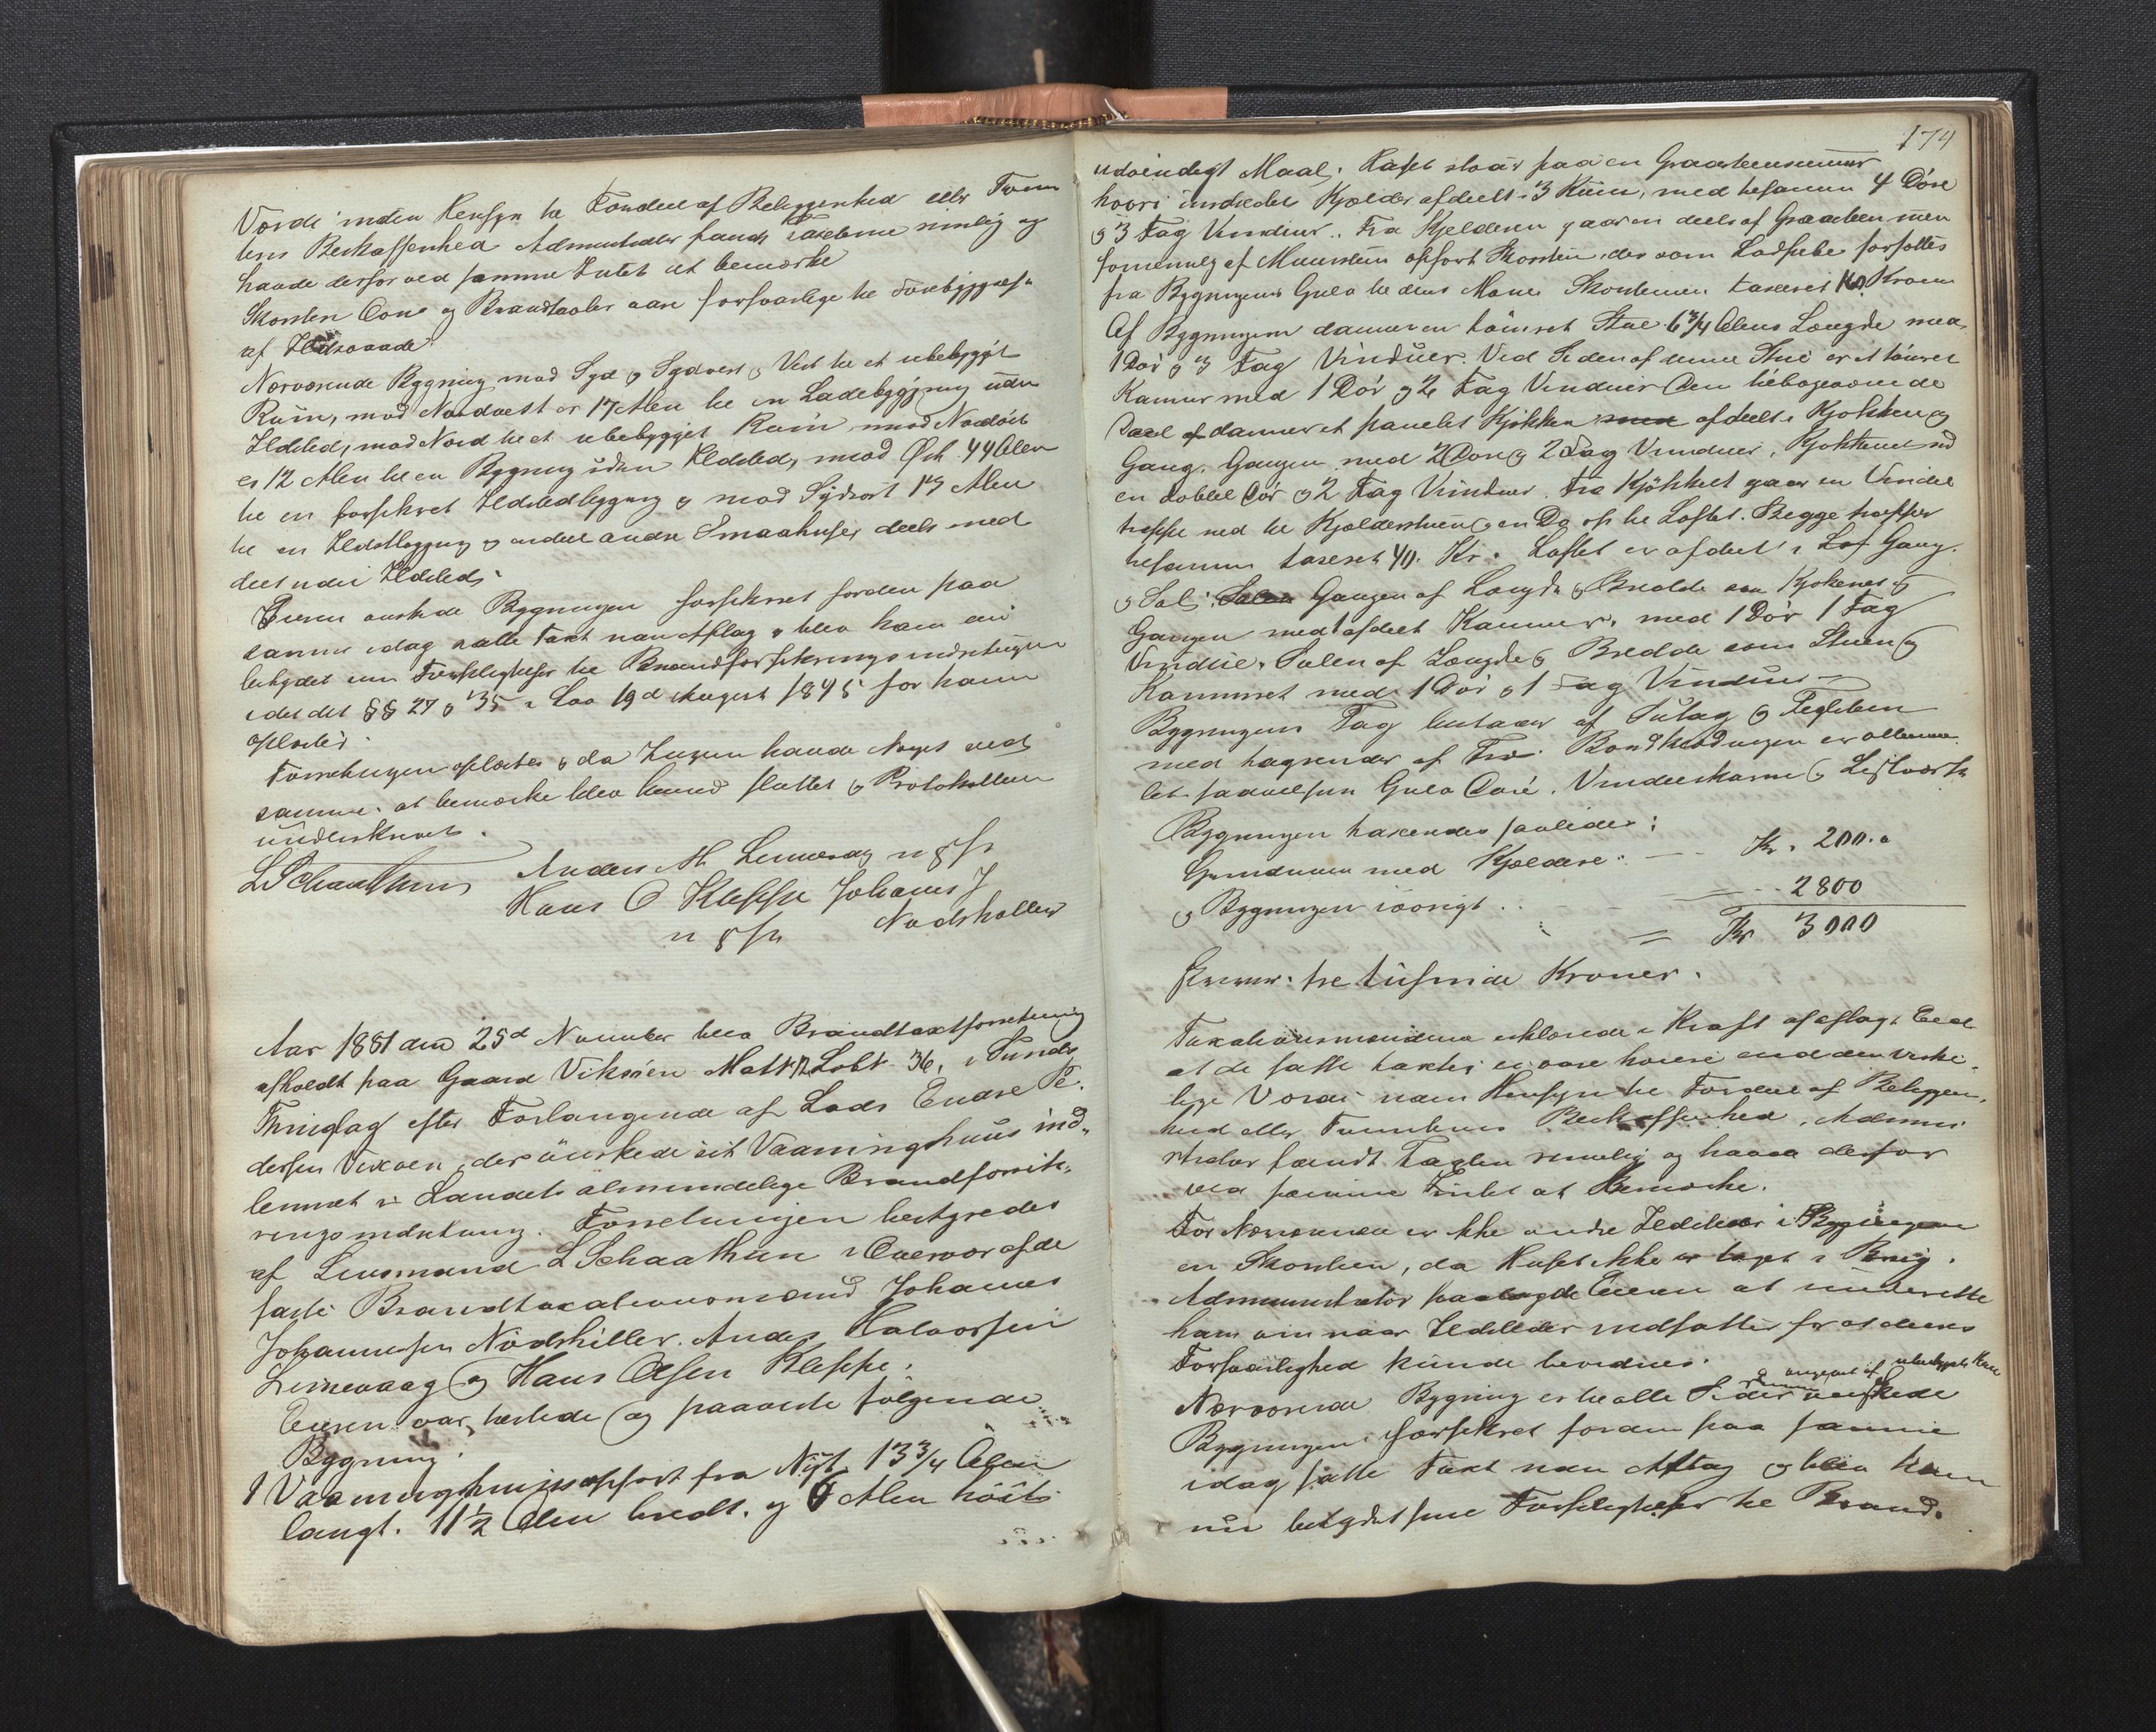 Værdi uden Hensyn til Fordeel af Beliggenhed eller Tom
tens Beskaffenhed Administrator fandt Taxterne rimelig og
havde derfor ved samme Intet at bemærke
Skorsten Ovne og Brandtavler vare forsvarlige til Forebyggelse
af Ildsvaade
Nærværende Bygning mod Syd og Sydvest og Vest til et ubebygget
Rúm, mod Nordvest er 17 Alen til en Ladebygning uden
Ildsted, mod Nord til et ubebygget Rúm mod Nordøst
er 12 Alen til en Bygning úden Ildsted, mod Øst 44 Alen
til en forsikret Ildstedbygning og mod Sydøst 17 Alen
til en Ildstbygning og endeel andre Smaahuse, deels med
deels uden Ildsted,
Eieren ønskede Bygningen forsikret forden paa
samme idag satte Taxt uden Afslag og blev ham
betydet sine Forpligtelser til Brandforsikringsindretningen
idet det §§ 27 og 35 i Lov 19d August 1845 for ham
oplæstes.
Forretningen oplæstes og da Ingen havde Noget ved
samme at bemærke blev hermed sluttet og Protokollen
únderskrevet.
L Schaathun Anders H Lernevaag m p P
Hans O Kleppe Johannes J
m p P Nødskiller
Aar 1881 den 25d November blev Brandtaxtforretning
afholdt paa Gaard Viksöen Matr N Løbt 36, i Sunds
Thinglag efter Forlangende af Lods Endre Pe
dersen Vixøen, der önskede sit Vaaningshuus ind-
lemmet i Landets almindelige Brandforsik-
ringsindretning. Forretningen bestyredes
af Lensmand L Schaathun i Overvær af de
faste Brandtaxationsmænd Johannes
Johannessen Nödskiller. Anders Halvorsen
Lernevaag og Hans Olsen Kleppe.
Eieren var tilstede og paaviste fölgende
Bygning.
1 Vaaningshuus opfört fra Nyt, 13 3/4 Alen
langt. 11 1/2 Alen bredt. og 6 Alen höit
174
udvendigt Maal. Huset staar paa en Graasteensmuur
hvori indredet Kjælder afdeelt i 3 Rúm, med tilsammen 4 Döre
og 3 Fag Vinduer. Fra Kjelderen gaar en deels af Graasteen men
fornemelig af Muursteen opfört Skorsten, der som Lødpibe forsættes
fra Bygningens Gulv til dens Möne Skorstenen taxeret 160 Kroner
Af Bygningen danner en tømret Stue 6 3/4 Alens Længde med
1 Dör og 3 Fag Vindúer. Ved Siden af denne Stue er et tömret
Kammer med 1 Dör og 2 Fag Vinduer Den tilbageværende
Deel af danner et panelet Kjøkken med afdeelt i Kjøkken og
Gang. Gangen med 2 Döre og 2 Fag Vinduer, Kjøkkenet med
en dobbel Dör og 2 Fag Vinduer. Fra Kjökkenet gaar en Vindel
trappe ned til Kjælderstuen og en Do op til Loftet. Begge trapper
tilsammen taxeret 40. Kr. Loftet er afdeelt i Lof Gang.
og Sal. Salen Gangen af Længde og Bredde som Kjøkkenet og
Gangen med 1 afdeelt Kammer, med 1 Dör 1 Fag
Vindúe. Salen af Længde og Bredde som Stuen og
Kammeret med 1 Dör og 1 Fag Vindúe
Bygningens Tag bestaaer af Sutag og Teglsteen
med tagrender af Træ. Bordklædningen er oliema-
let saavelsom Gulv Döre. Vindueskarme og Listværk
Bygningen taxeredes saaledes:
Grundmuren med Kjældere. Kr. 200.
og Bygningen iövrigt .. 2800
= Kr 3000
skriver: tre tusinde Kroner.
Taxationsmændene erklærede i Kraft af aflagt Eed
at de satte taxter ei vare höiere end den virke-
lige Værdi uden Hensyn til Fordeel af Beliggen-
hed eller Tomtens Beskaffenhed, Admini
strator fandt Taxten rimelig og havde derfor
ved samme Intet at Bemærke.
For Nærværende er ikke andre Ildsteder i Bygningen
en Skorsten, da Huset ikke er taget i Brúg.
Administrator paalagde Eieren at underrette
ham om naar Ildsteder indsættes for at deres
Forsvarlighed kúnde bevidnes.
omgivet af ubebygget Rum
Nærværende Bygning er til alle Sider ønskede
Bygningen forsikret for den paa samme
idag satte Taxt uden Afslag og blev ham
nu betydet sine Forpligtelser til Brand-